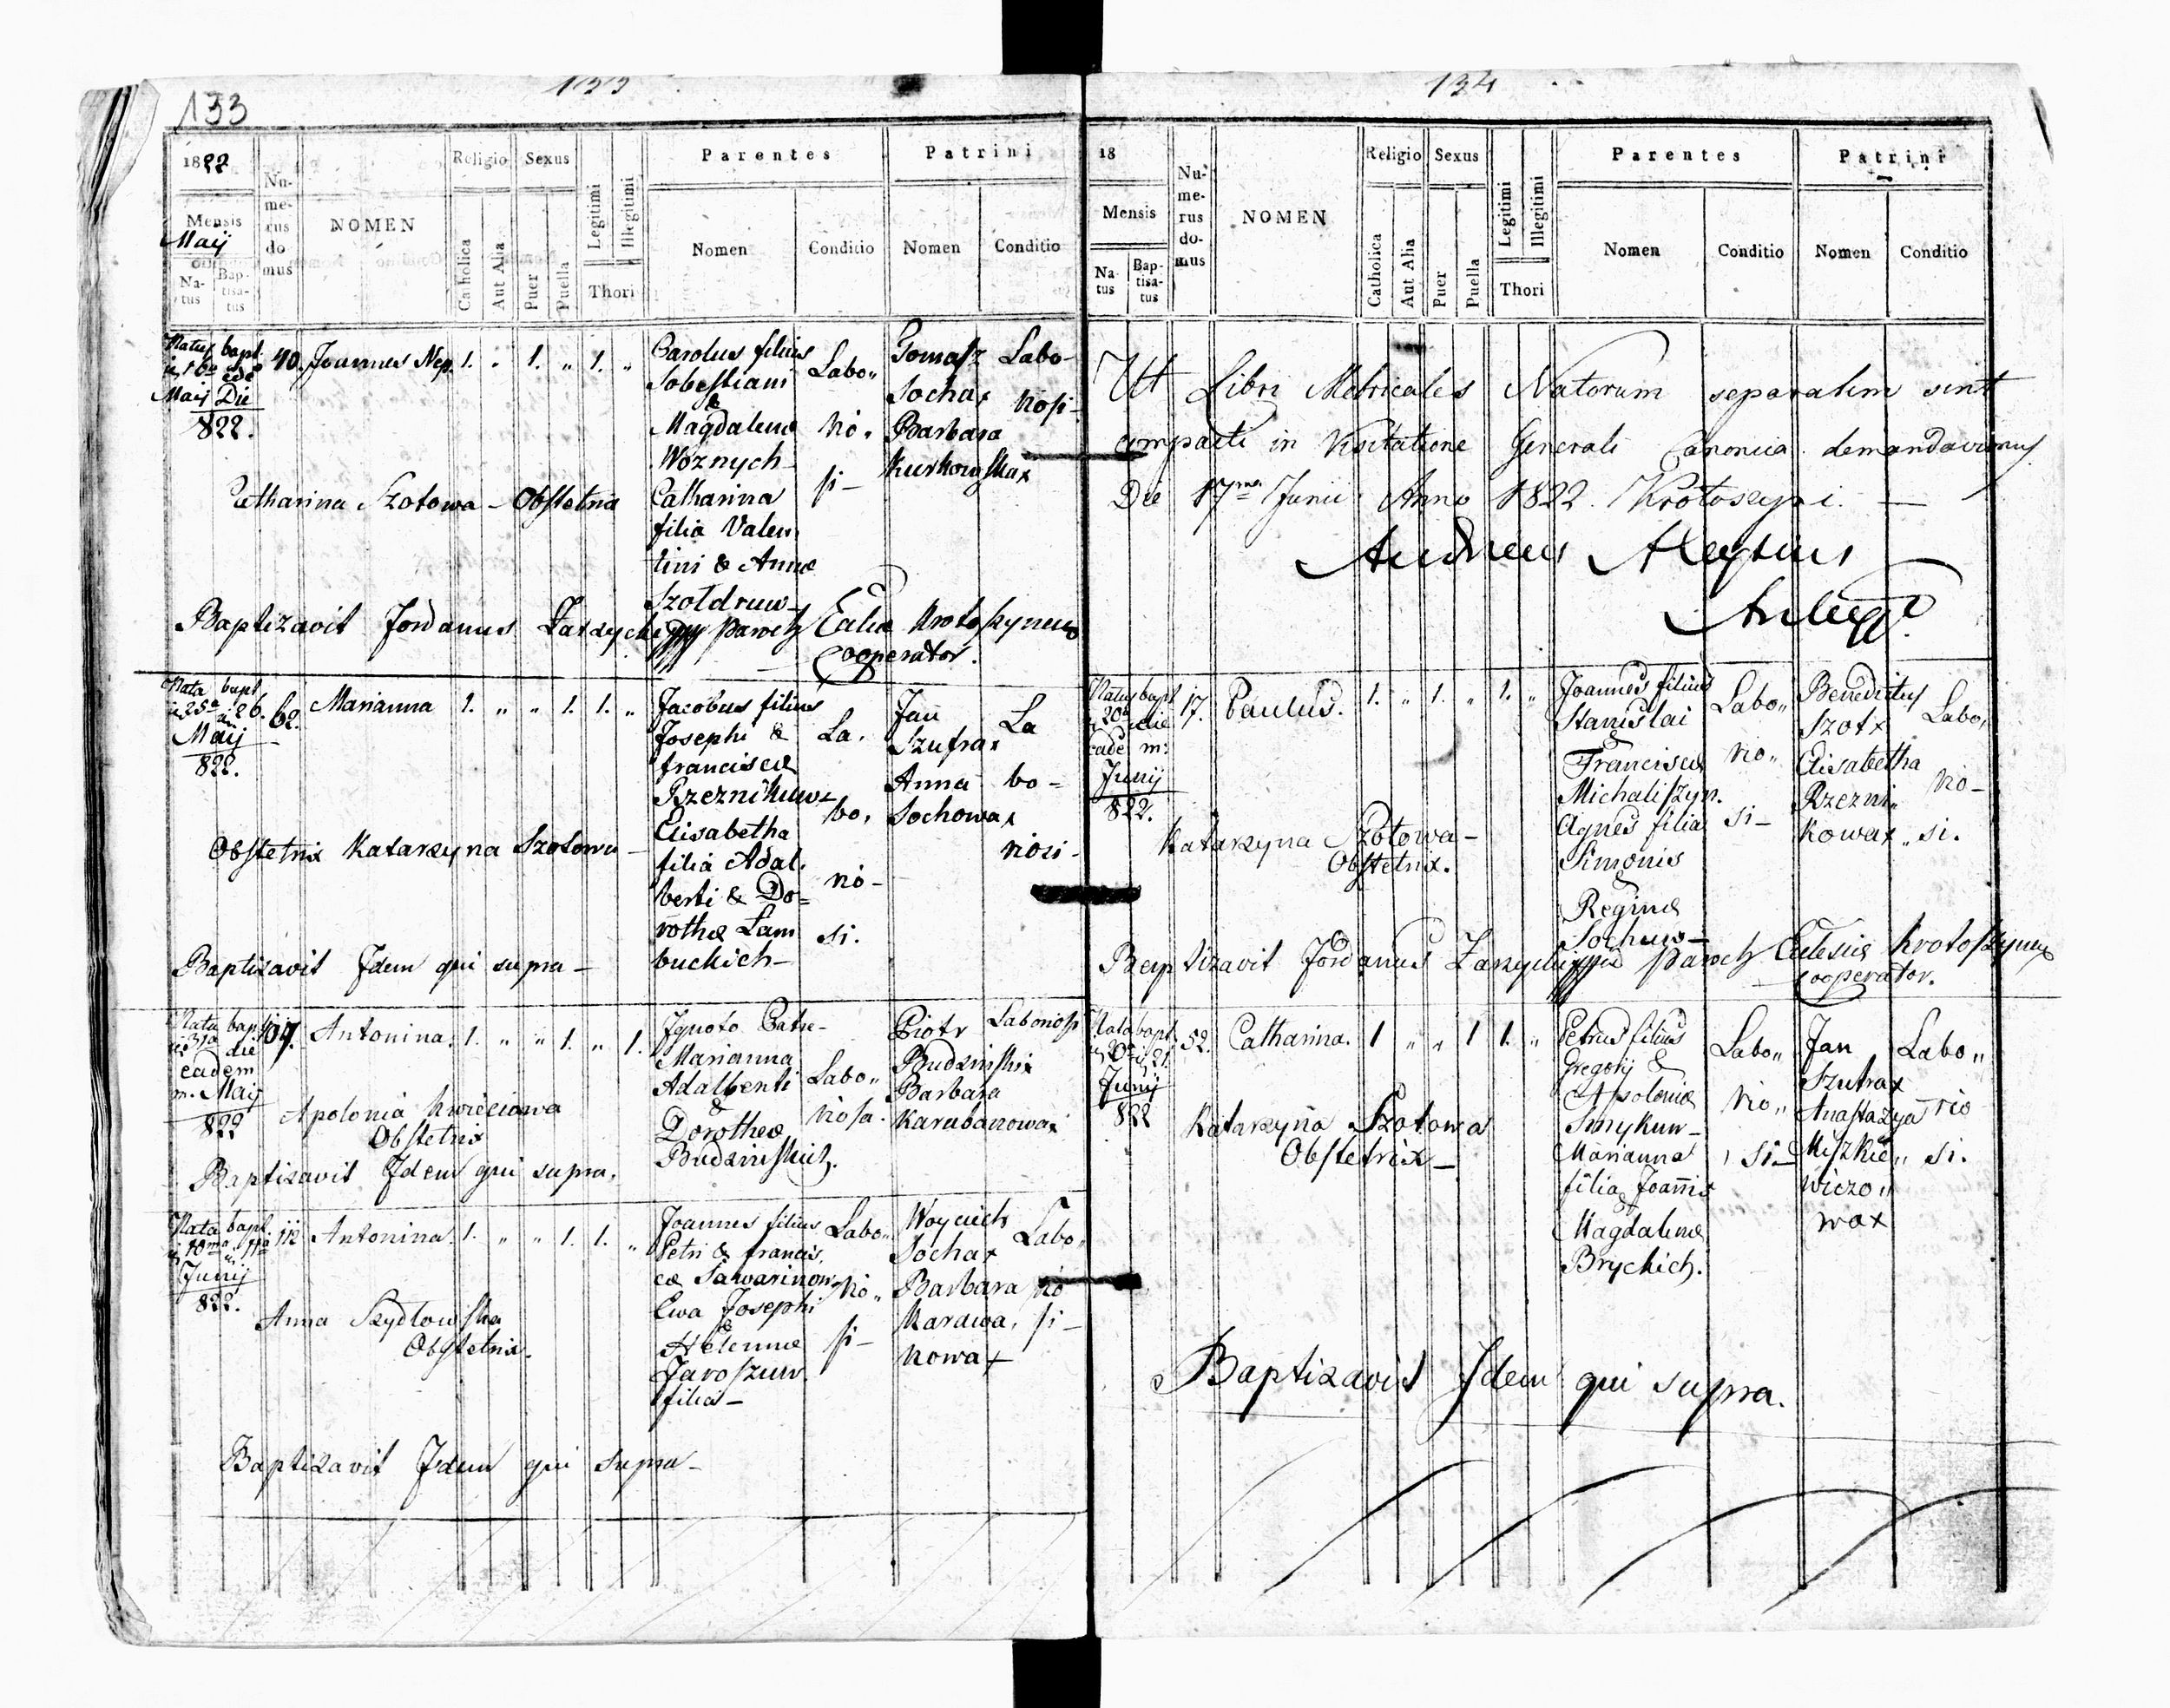 133
133
1822
Mensis
Maij
Natus
Baptisatus
Numerus domus
NOMEN
Religio
Catholica
Aut Alia
Sexus
Puer
Puella
Legitimi
Illegitimi
Thori
Parentes
Nomen
Conditio
Patrini
Nomen
Conditio
Natus bapt.
Maij Die
822.
40.
Joannes Nep.
1. „ 1. „ 1. „
Carolus filius
Sobestiani
&
Magdalenæ
Woznych
Catharina
filia Valen
tini & Annæ
Szotdruw
Labo„
rio.
si-
Tomasz
Sochax
Barbara
Kurkowskax
Labo-
riosi-
Catharina Szotowa - Obstetrix
Baptizavit Jordanus Zarzycki Paroch Eccliæ Krotoszynen
Cooperator.
Nata bapt.
25a 26.
Maij
822.
62.
Marianna
1. „ „ 1. 1. „
Jacobus filius
Josephi &
Franciscæ
Rzeznikuw
Elisabetha
filia Adal.
berti & Do=
rotheæ Lam
buckich-
La.
bo,
rio-
si.
Jan
Szufrax
Anna
Sochowax
La
bo-
riosi-
Obstetrix Katarzyna Szotowa
Baptizavit Idem qui supra-
Nata bapt.
31a die
eadem
m. Maij
822
109.
Antonina.
1. „ „ 1. „ 1.
Ignoto Patre-
Marianna
Adalberti
&
Dorotheæ
Budzinskich.
Labo„
riosa.
Piotr
Budzinskix
Barbara
Karabanowax
Laboriosi
Apolonia Kwieciowa
Obstetrix
Baptizavit Idem qui supra.
Nata bapt.
10ma 11a
Junij
822.
112
Antonina.
1. „ „ 1. 1. „
Joannes filius
Petri & Francis.
cæ Sawarinow
Ewa Josephi
&
Helennæ
Jaroszuw
filia-
Labo„
rio„
si-
Woyciech
Sochax
Barbara
Karawa.
nowax
Labo„
rio
si-
Anna Szydlowska
Obstetrix.
Baptizavit Idem qui supra-
134
18
Mensis
Natus
Baptisatus
Numerus domus
NOMEN
Religio
Catholica
Aut Alia
Sexus
Puer
Puella
Legitimi
Illegitimi
Thori
Parentes
Nomen
Conditio
Patrini
Nomen
Conditio
Ut Libri Metricales Natorum separatim sint
compacti in Visitatione Generali Canonica demandavimus
Die 17ma Junii Anno 1822. Krotoszyni.
Andreas
Natus bapt
20a die
eade m:
Junij
822.
17.
Paulus.
1. „ 1. „ 1. „
Joannes filius
Stanislai
&
Franciscæ
Michaliszyn.
Agnes filia
Simonis
&
Reginæ
Sochuw-
Labo„
rio„
si-
Benedictus
Szotx
Elisabetha
Rzezni„
kowax„
Labo„
rio-
si.
Katarzyna Szotowa-
Obstetrix.
Baptizavit Jordanus Zarzycki Paroch Ecclesiæ Krotoszynen
Cooperator.
Nata bapt.
20a 21.
Junij
822
52.
Catharina.
1 „ „ 1 1. „
Petrus filius
Gregorij &
Apoloniæ
Smykuw-
Marianna
filia Joannis
&
Magdalenæ
Brychich.
Labo„
rio„
si-
Jan
Szufrax
Anastazya
Miszkie„
wiczo„
wax
Labo„
rio
si.
Katarzyna Szotowa
Obstetrix-
Baptizavit Idem qui supra.